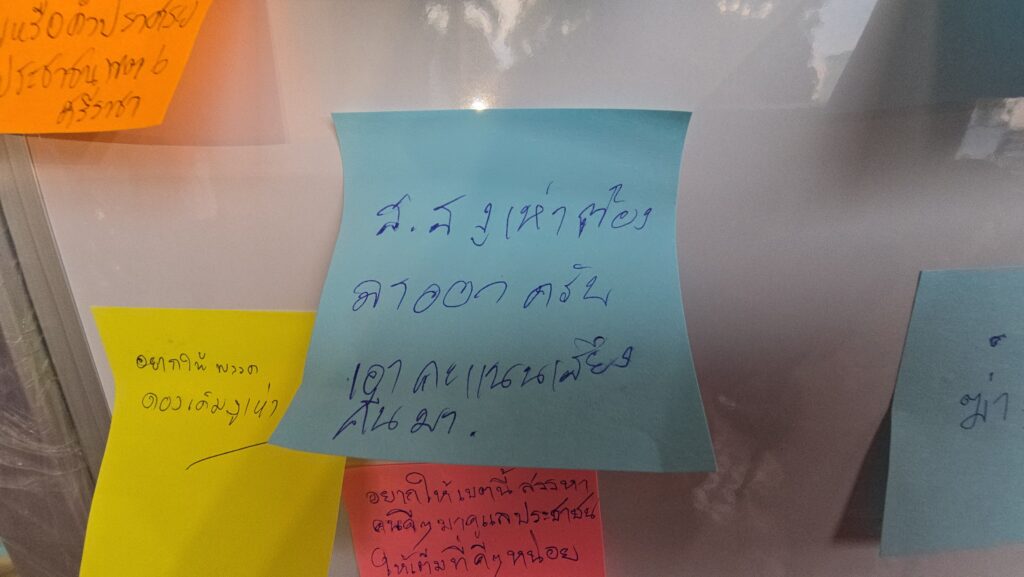 หรือคำปราศรัย
ประชาชน เขต 6
ศรีราชา
ส.ส งูเห่าต้อง
ลาออก ครับ
เอาคะแนนเสียง
คืนมา.
อยากให้พรรค
ดองเค็มงูเห่า
อยากให้เขตนี้ สรรหา
คนดีๆ มาดูแลประชาชน
ให้เต็มที่ดีๆ หน่อย